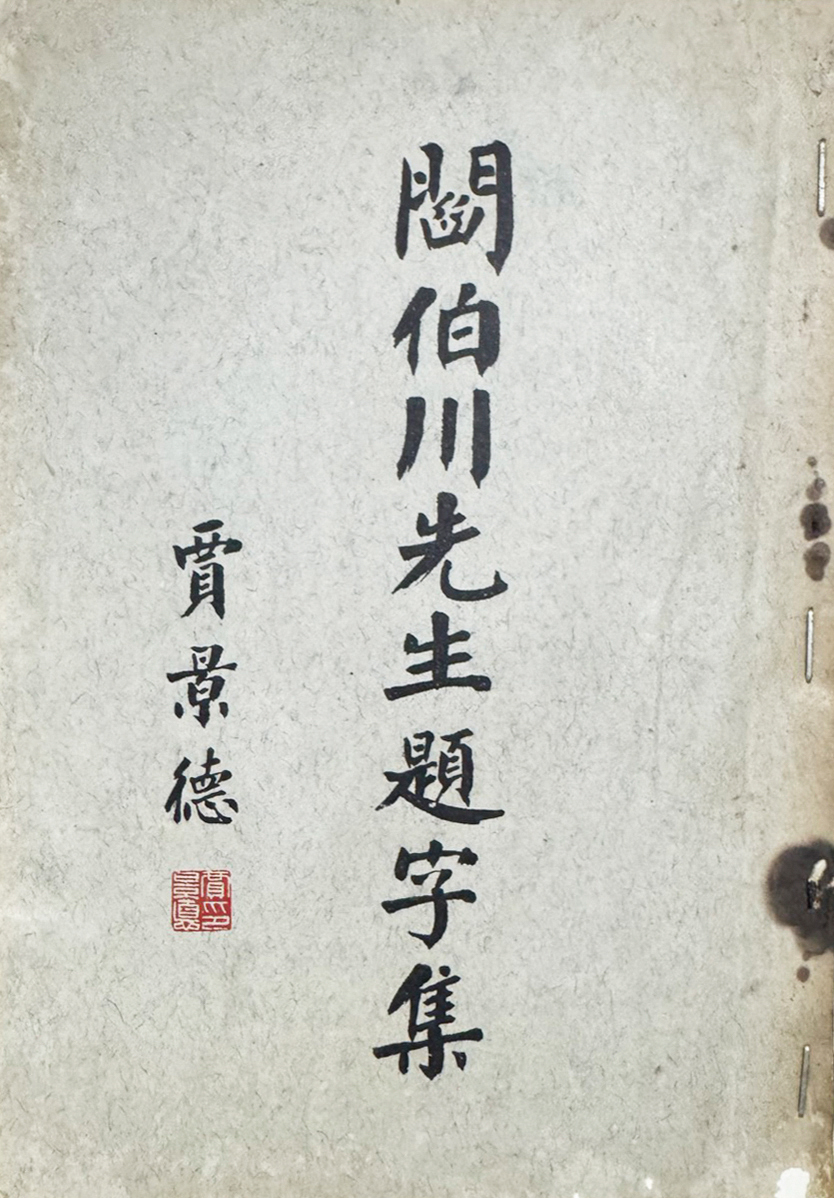 閻伯川先生題字集
賈景德
賈印
景悳